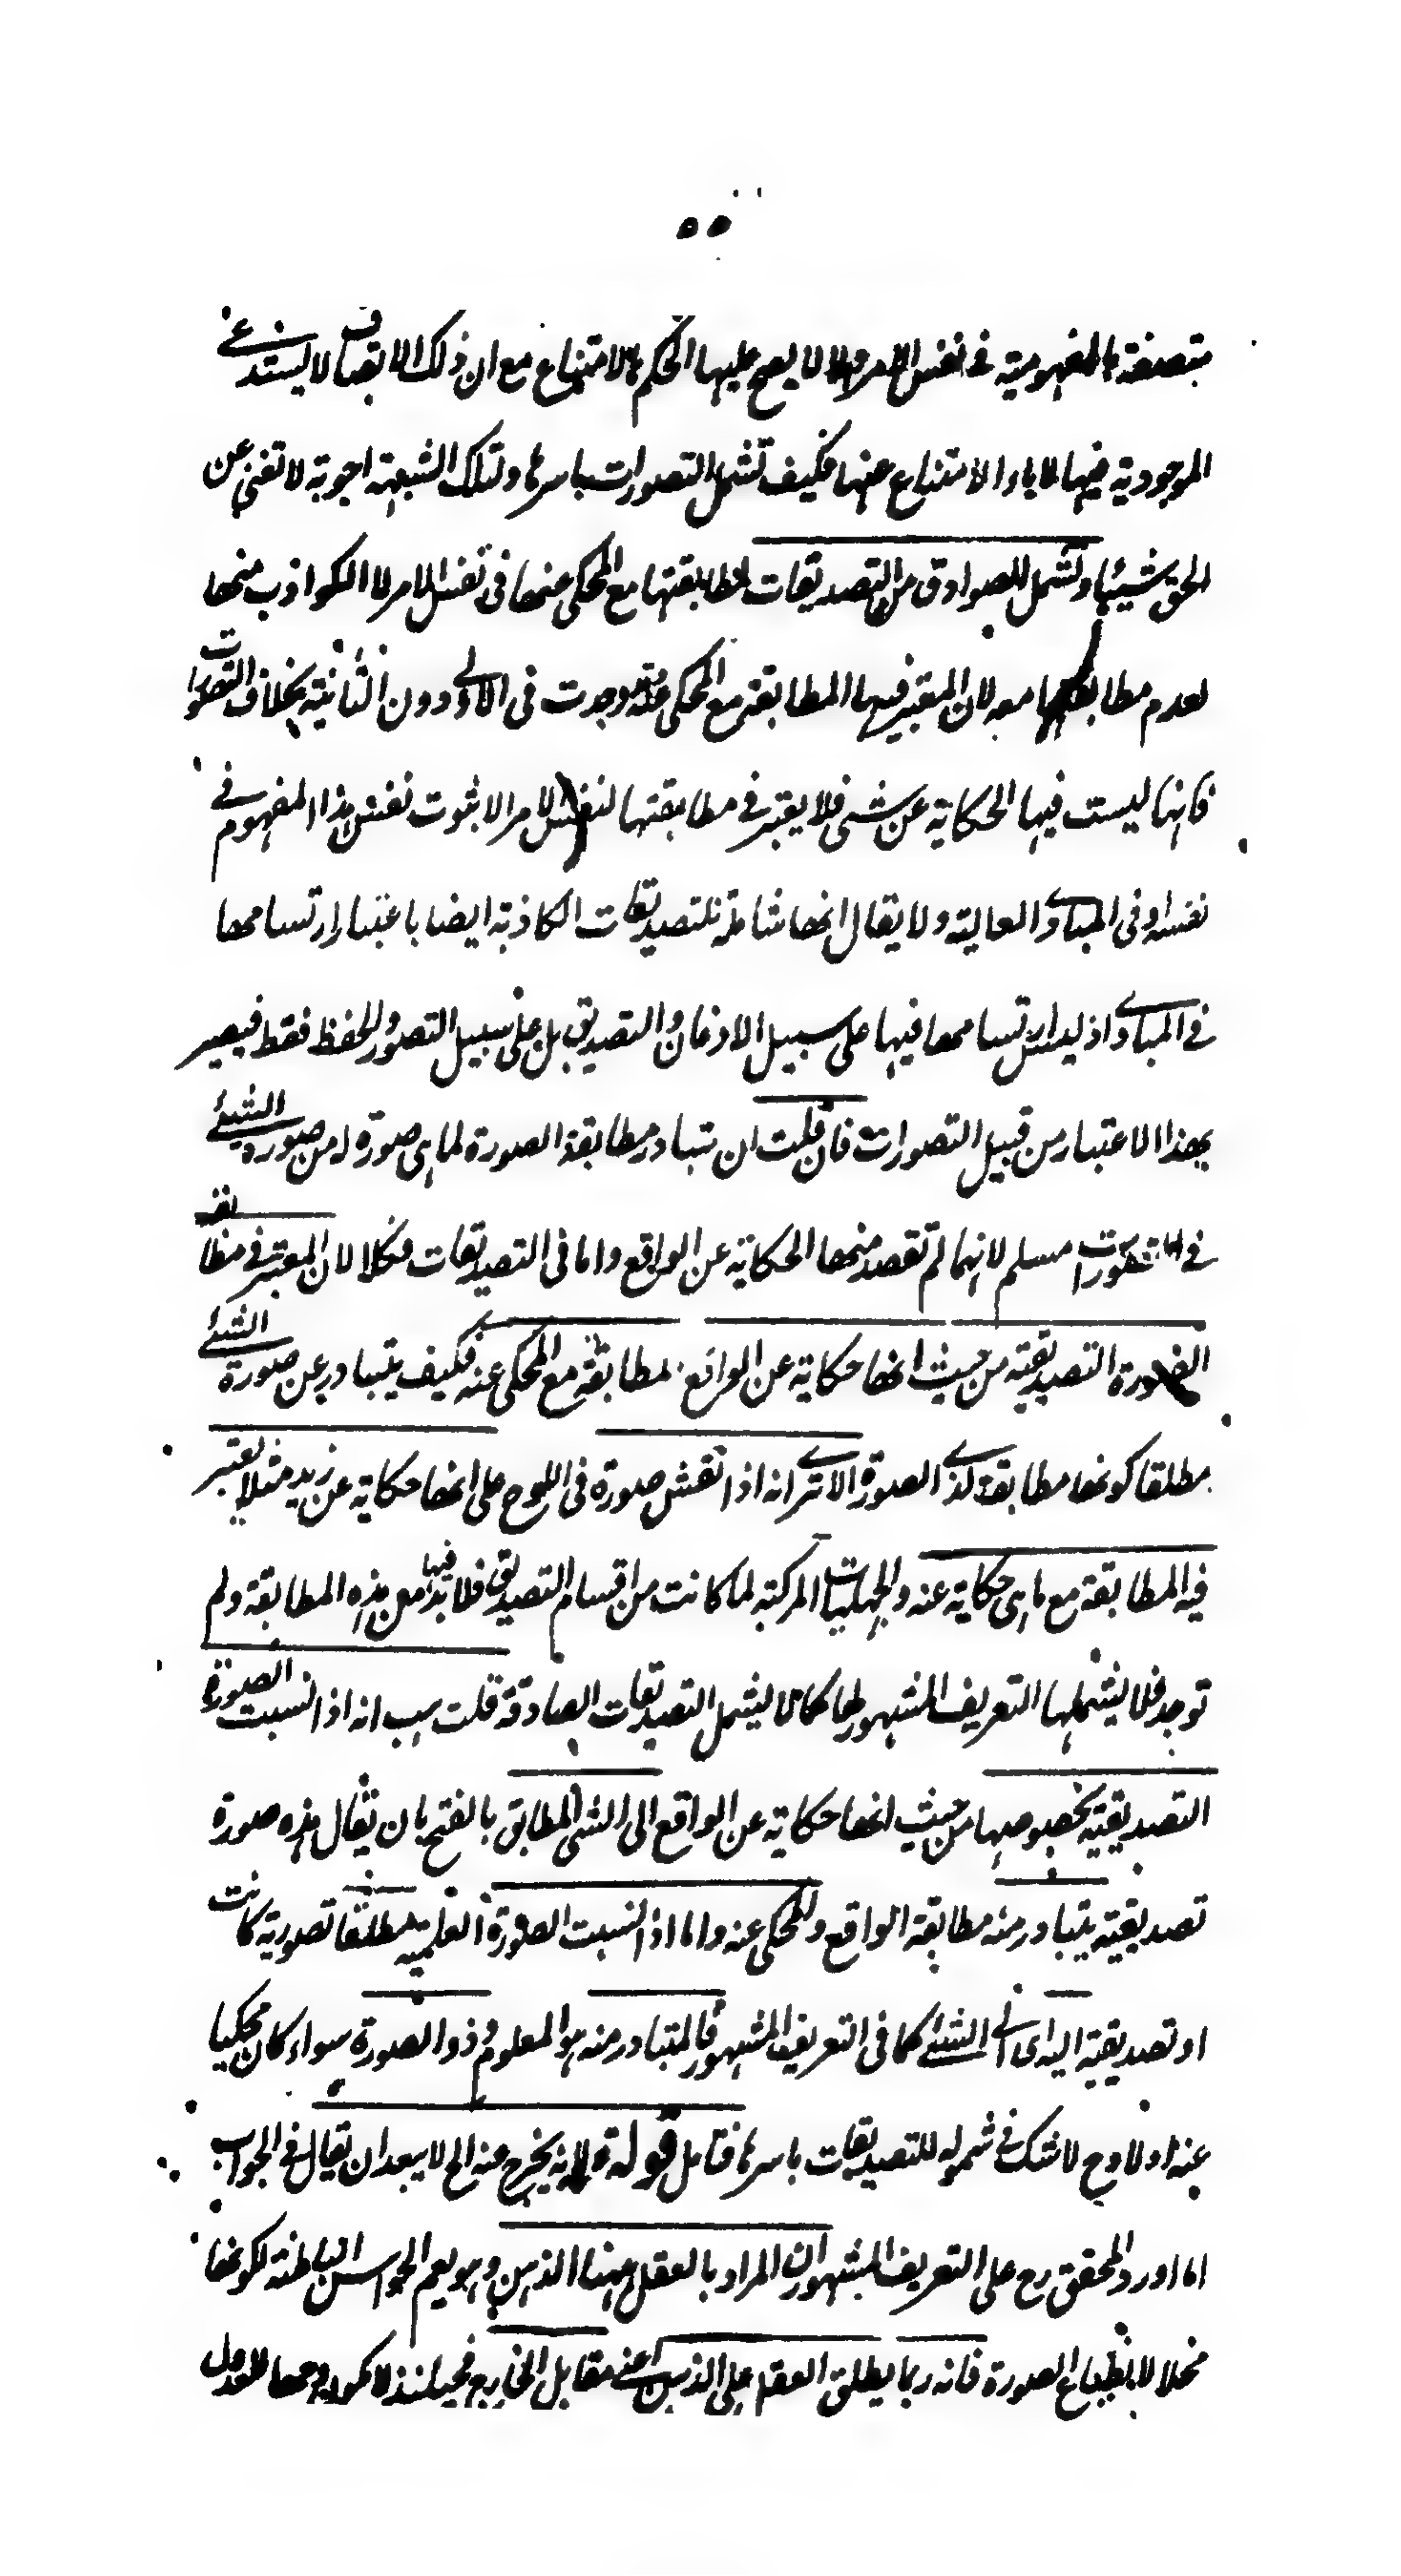 ٥٥
متصفة بالمفهومية في نفس الامر والا لا يصح عليها الحكم بالامتناع مع ان ذلك الاتصاف لا يستدعي
الموجودية فيها لاباء الامتناع عنها فكيف تشمل التصورات باسرها ولتلك الشبهة اجوبة لا تغني عن
الحق شيئا وتشمل للصوادق من التصديقات لمطابقتها مع المحكي عنها في نفس الامر لا الكواذب منها
لعدم مطابقتها معه لان المعتبر فيها المطابقة مع المحكي عنه وجدت في الاولى دون الثانية بخلاف التصورات
فانها ليست فيها الحكاية عن شي فلا يعتبر في مطابقتها لنفس الامر الا ثبوت نفس هذا المفهوم في
نفسه او في المبادي العالية ولا يقال انها شاملة للتصديقات الكاذبة ايضا باعتبار ارتسامها
في المبادي اذ ليس ارتسامها فيها على سبيل الاذعان والتصديق بل على سبيل التصور والحفظ فقط فيصير
بهذا الاعتبار من قبيل التصورات فان قلت ان تبادر مطابقة الصورة لما هي صورة له من صورة الشيئ
في التصورات مسلم لانها لم تقصد منها الحكاية عن الواقع واما في التصديقات فكلا لان المعتبر في مطابقة
الصورة التصديقية من حيث انها حكاية عن الواقع مطابقة مع المحكي عنه فكيف يتبادر عن صورة الشيئ
مطلقا كونها مطابقة لذي الصورة الا ترى انه اذا نقش صورة في اللوح على انها حكاية عن زيد مثلا يعتبر
فيه المطابقة مع ما هي حكاية عنه والجهليات المركبة لما كانت من اقسام التصديق فلا بد فيها من هذه المطابقة ولم
توجد فلا يشملها التعريف المشهور لها كما لا يشمل التصديقات الصادقة قلت هب انه اذا نسبت الصورة
التصديقية بخصوصها من حيث انها حكاية عن الواقع الى الشي المطابق بالفتح بان يقال هذه صورة
تصديقية يتبادر منه مطابقة الواقع والمحكي عنه واما اذا نسبت الصورة العلمية مطلقا تصورية كانت
او تصديقية اليه اي الى الشيئ كما في التعريف المشهور فالمتبادر منه هو المعلوم وذو الصورة سواء كان محكيا
عنه اولا وح لا شك في شموله للتصديقات باسرها فتامل قوله لانه يخرج عنه الخ لا يبعد ان يقال في الجواب
اما اورد المحقق رح على التعريف المشهور ان المراد بالعقل ههنا الذهن وهو يعم الحواس الباطنة لكونها
محلا لانطباع الصورة فانه ربما يطلق العقل على الذهن اعني مقابل الخارج فحينئذ لا